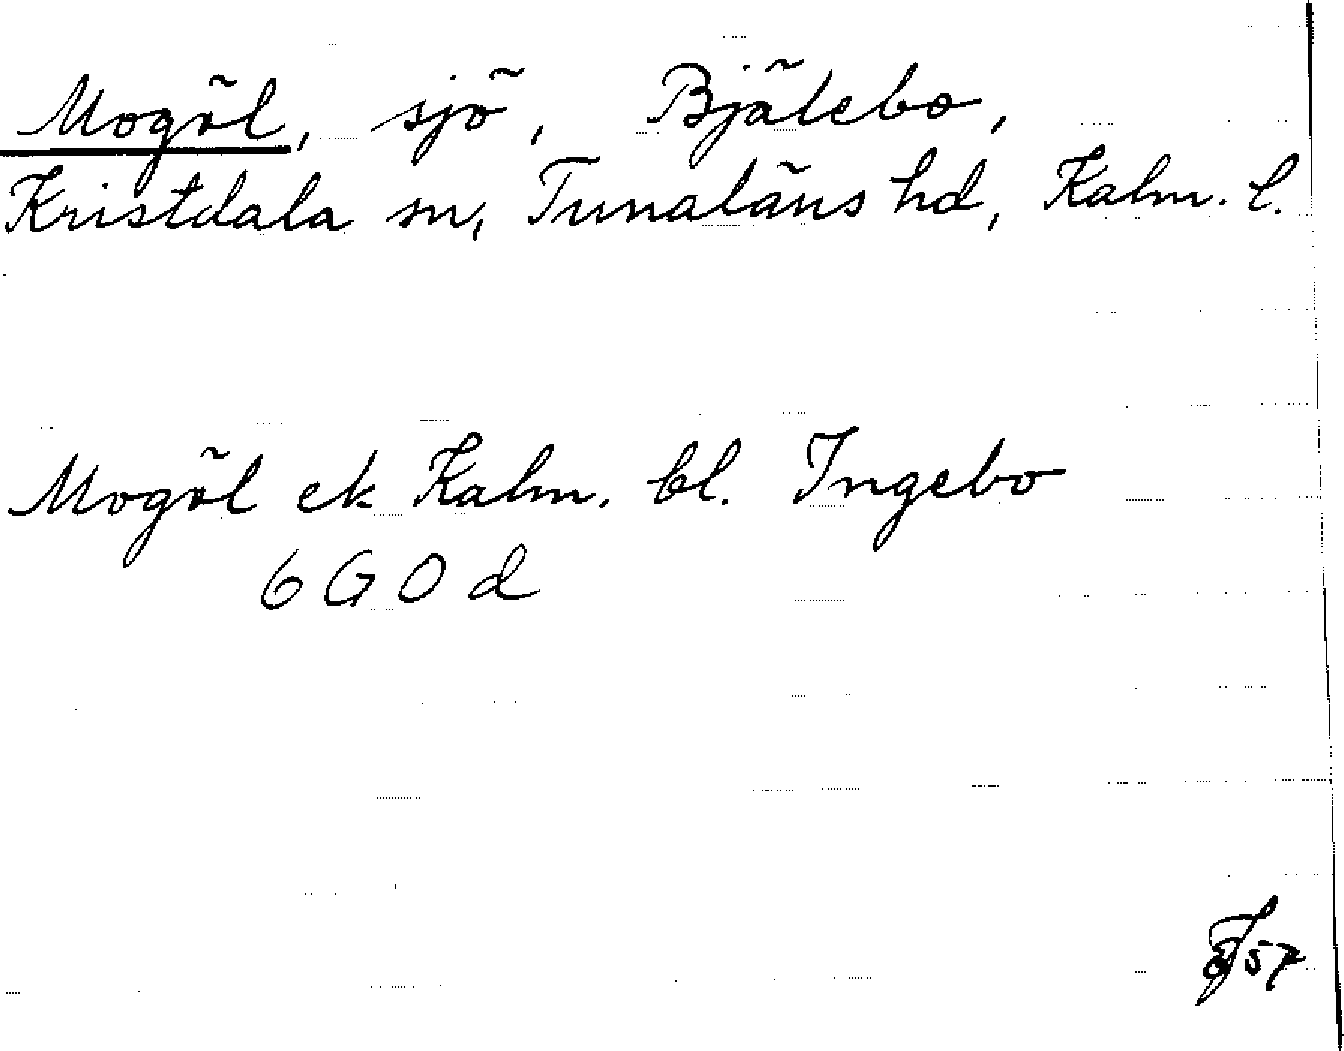 Mogöl, sjö, Bjälebo,
Kristdala sn, Tunaläns hd, Kalm. l.
Mogöl ek Kalm. bl. Ingebo
6 G O d
57